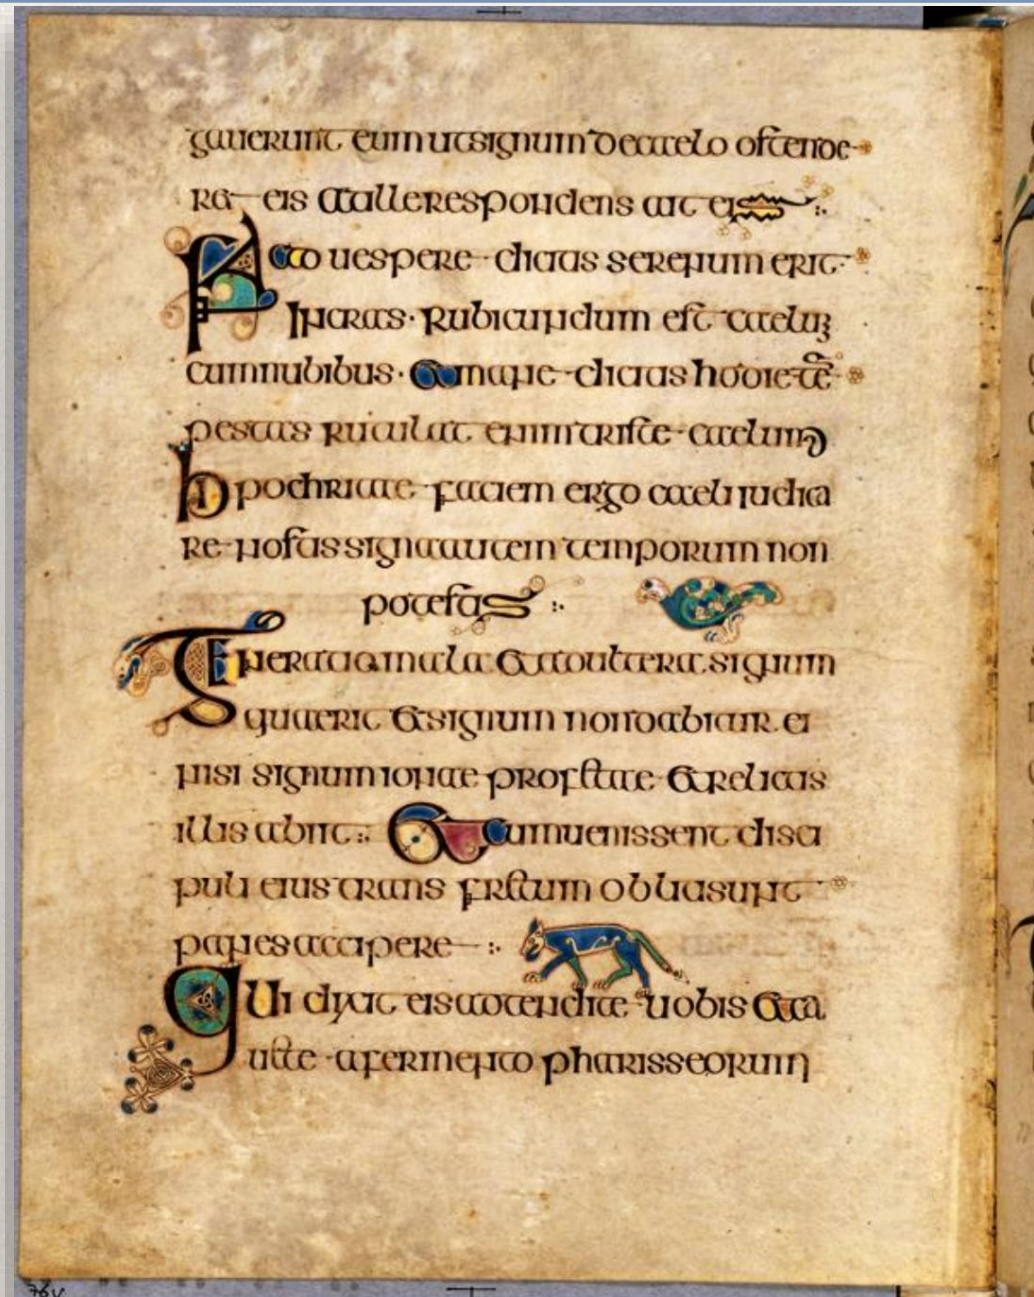 gauerunt eum ut signum de caelo ostende
re eis at ille respondens ait eis
Facto uespere dicitis serenum erit
in cras. Rubicundum est caelum
cum nubibus. et mane dicitis hodie tē
pestas rutulat enim triste caelum
hipochritae faciem ergo caeli iudica
re nostis signa autem temporum non
potestis
Generatio mala et adultera signum
quaerit et signum non dabitur ei
nisi signum ionae profetae et relictis
illis abiit Et cum uenissent disci
puli eius trans fretum obliti sunt
panes accipere
Qui dixit eis adtendite uobis et ca
uete a fermento pharisseorum
76v